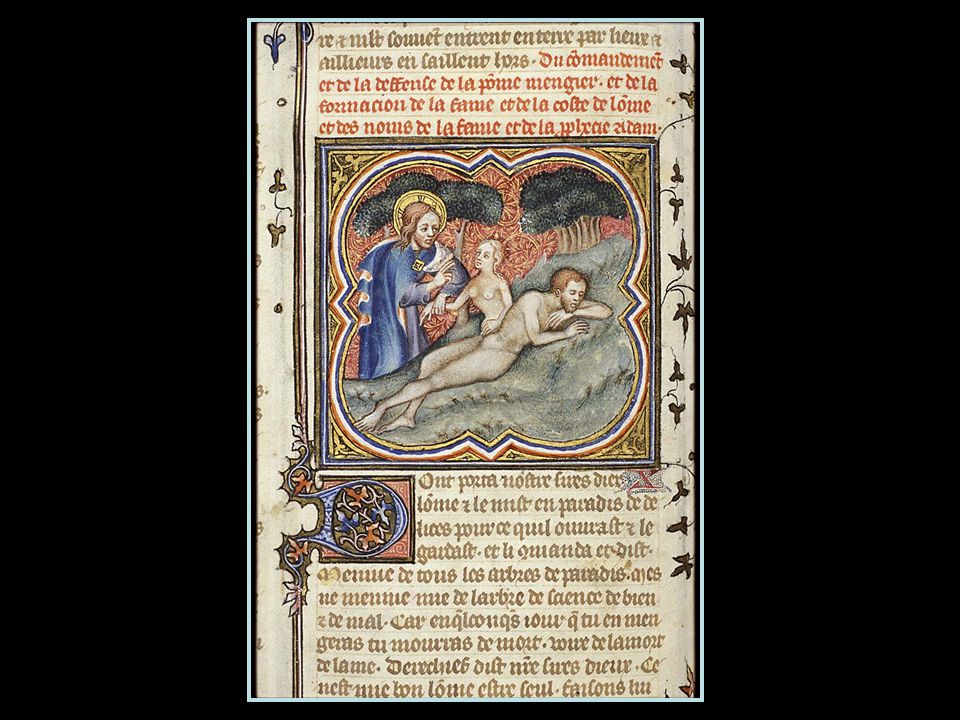 re ⁊ nist souvēt entrent en terre par lieux ⁊
aillieurs en saillent hors. Du cōmandemēt
et de la deffense de la pōme mengier. et de la
formacion de la fame et de la coste de lōme
et des noms de la fame et de la ꝓphecie adam.
Dont porta nostre sires diex
lōme ⁊ le mist en paradis de de
lices pour ce quil ouvrast ⁊ le
gardast. et li cōmanda et dist.
Menjue de tous les arbres de paradis. Mes
ne menjue mie de larbre de science de bien
⁊ de mal. Car en qlconqs iour q̄ tu en men
geras tu mourras de mort. voire de la mort
de lame. Derechief dist nr̄e sires dieux. Ce
nest mie bon lōme estre seul. faisons lui